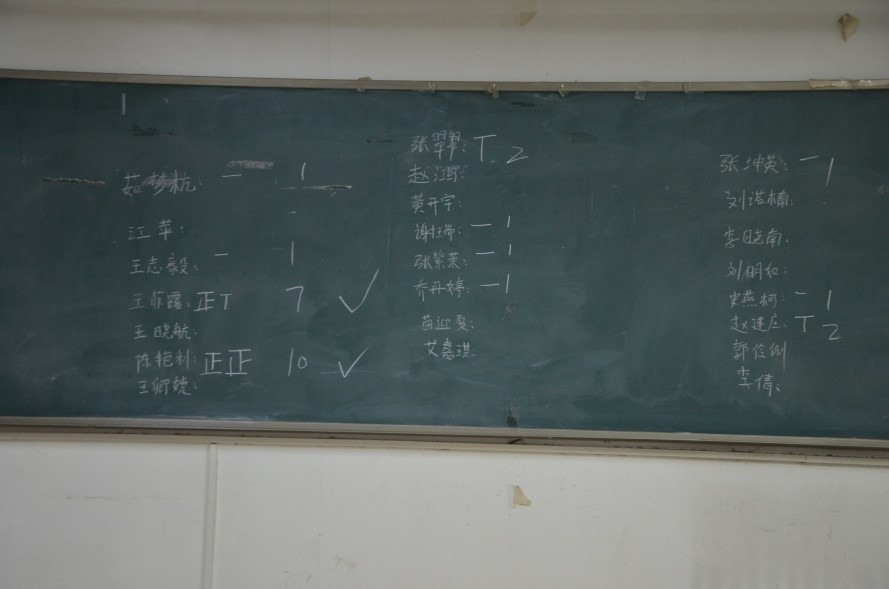 茹梦杭: 一 1
江苹:
王志毅: 一 1
王菲露: 正T 7 ✓
王晓航:
陈艳利: 正正 10 ✓
王卿
张翠翠: T 2
赵江
黄开宇:
谢 一 1
张紫茉: 一 1
乔丹婷: 一 1
苗
艾嘉淇
张坤英: 一 1
刘诺楠:
李晓南.
刘明如:
史燕柯: 一 1
赵建 T 2
郭
李倩: